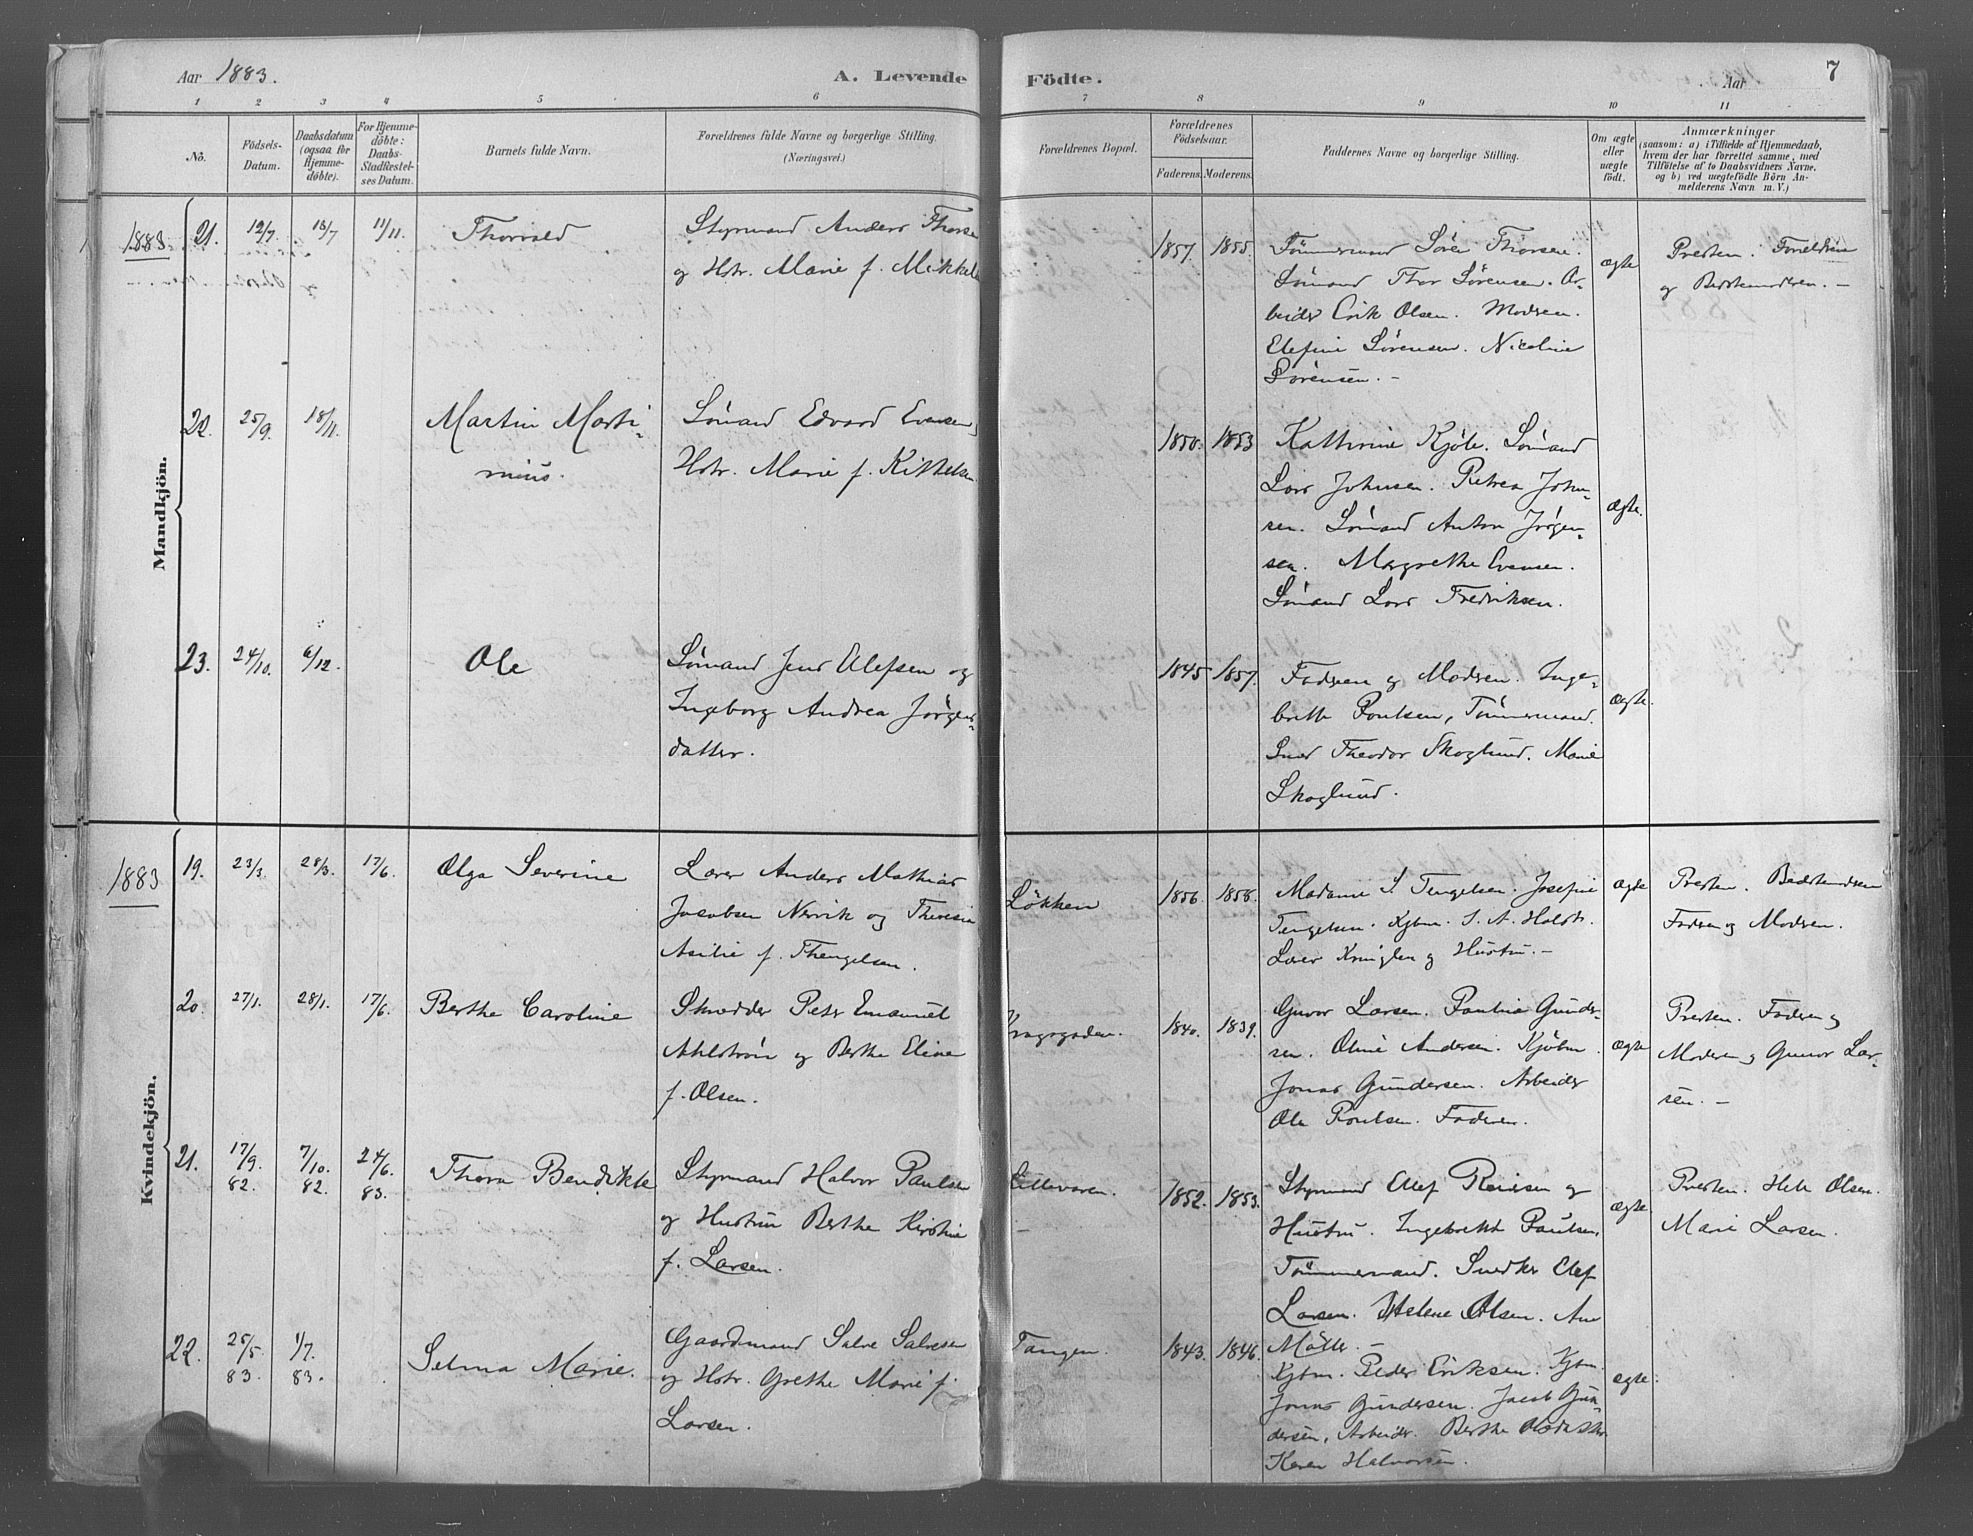 Aar 1883. A. Levende Födte. Aar 7
1 2 3 4 5 6 7 8 9 10 11
No.
Födsels-
Datum.
Daabsdatum
(ogsaa for
Hjemme-
döbte).
For Hjemme-
döbte:
Daabs-
Stadfæstel-
ses Datum.
Barnets fulde Navn.
Forældrenes fulde Navne og borgerlige Stilling.
(Næringsvei.)
Forældrenes Bopæl.
Forældrenes
Födselsaar.
Faderens. Moderens.
Faddernes Navne og borgerlige Stilling.
Om ægte
eller
uægte
födt.
Anmærkninger
(saasom: a) i Tilfælde af Hjemmedaab,
hvem der har forrettet samme, med
Tilföielse af to Daabsvidners Navne,
og b) ved uægtefödte Börn An-
melderens Navn m. V.)
Mandkjön.
1883. 21. 12/7 13/7 11/11. Thorvald
Styrmand Anders Thorse
og Hstr. Marie f. Mikkel
1857. 1855.
Tömmermand Sören Thorsen.
Sömand Thor Sörensen. Ar-
beider Erik Olsen. Moderen.
Elefine Sörensen. Nicoline
Sörensen. -
ægte
Presten. Forældrene
og Bedstemoderen. -
22. 25/9. 18/11. Martin Marti-
nius.
Sömand Edvard Evensen,
Hstr. Marie f. Kittelsen
1850. 1853
Kathrine Kjöle. Sömand
Lars Johnsen. Petrea John-
sen. Sömand Anton Jörgen-
sen. Margrethe Evensen.
Sömand Lars Fredriksen.
ægte.
23. 24/10. 6/12. Ole
Sömand Jens Olefsen og
Ingeborg Andrea Jörgens-
datter.
1845 1857.
Faderen og Moderen. Inge-
brett Poulsen, Tömmermand.
Sned Theodor Skoglund. Marie
Skoglund.
ægte.
Kvindekjön.
1883 19. 23/3. 28/3. 17/6. Olga Severine
Lærer Anders Mathias
Jacobsen Nervik og Theresia
Asilie f. Thengelsen.
Lökken 1856. 1858.
Madame S Tengelsen. Josefine
Tengelsen. Kjbm. S. A. Holst.
Lærer Kringlen og Hustru. -
ægte
Presten. Bedstemoderen
Faderen og Moderen.
20. 27/1. 28/1. 17/6. Berthe Caroline
Skrædder Peter Emanuel
Ahlström og Berthe Eline
f. Olsen.
Kragsgaden. 1840. 1839.
Gunvor Larsen. Paulina Gunder-
sen. Oline Andersen. Kjöbm.
Jonas Gundersen. Arbeider
Ole Poulsen. Faderen.
ægte
Presten. Faderen og
Moderen og Gunvor Lar-
sen. -
21. 17/9. 82. 7/10. 82. 24/6. 83. Thora Bendikte
Styrmand Halvor Paulsen
og Hustru Berthe Kirstine
f. Larsen.
1852. 1853.
Styrmand Ellef Reiersen og
Hustru. Ingebrett Paulsen
Tömmermand. Snedker Elef
Larsen. Helene Olsen. Ane
Möller. -
ægte
Presten. Hele Olsen.
Marie Larsen.
22. 25/5 83. 1/7. 83. Selma Marie.
Gaardmand Salve Salvesen
og Hstr. Grethe Marie f.
Larsen.
Tangen. 1843. 1846.
Kjbm. Peder Eriksen. Kjbm.
Jonas Gundersen. Jacob Gun-
dersen, Arbeider. Berthe
Karen Halvorsen.
ægte.